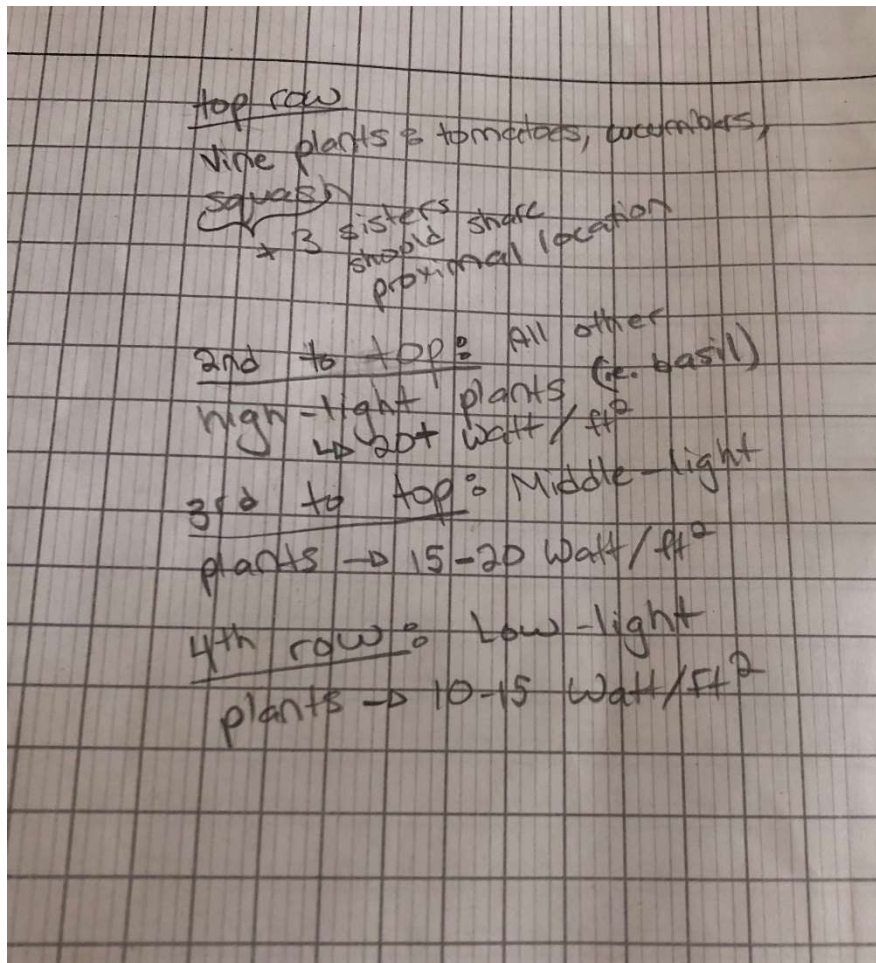 top row
Vine plants : tomatoes, cucumbers,
squash
* 3 sisters
should share
proximal location
2nd to top: All other
high-light plants (ie. basill)
↳ 20+ watt/ft²
3rd to top: Middle-light
plants → 15-20 Watt/ft²
4th row: Low-light
plants → 10-15 Watt/ft²